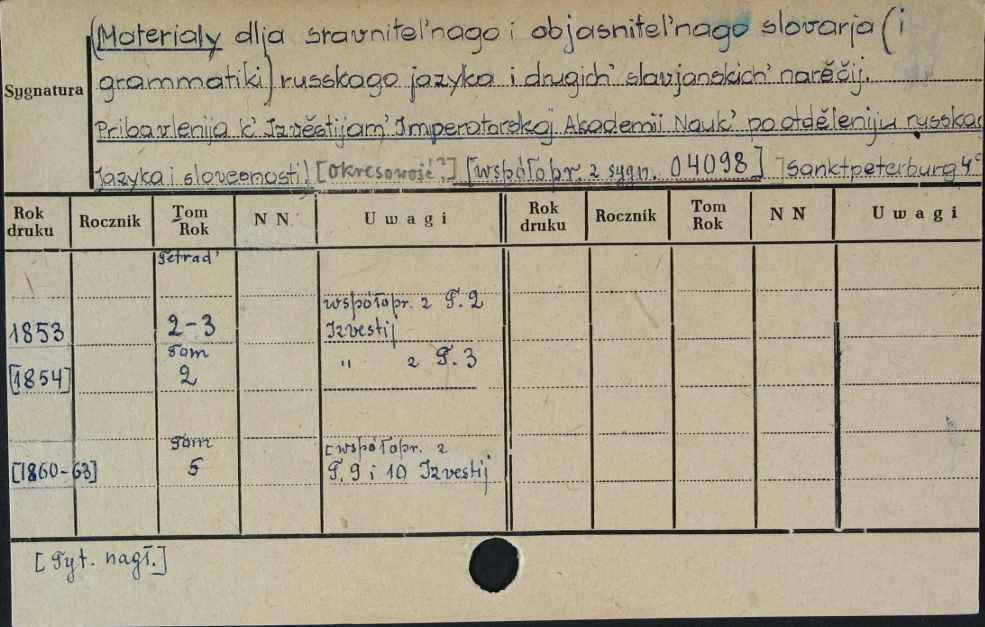 (Materialy dlja sravnitel'nago i objasnitel'nago slovarja (i
grammatiki) russkago jazyka i drugich' slavjanskich' narěčij.
Sygnatura
Pribavlenija k' Izvěstijam' Imperatorskoj Akademii Nauk' po otděleniju russkag
jazyka i slovesnosti) [okresowość?] [współopr. z sygn. 04098] Sanktpeterburg 4°
Rok druku Rocznik Tom Rok N N Uwagi Rok druku Rocznik Tom Rok N N Uwagi
Tetrad'
współopr. z T. 2
1853 2-3 Izvestij
Tom
[1854] 2 " z T. 3
Tom [współopr. z
[1860-63] 5 T. 9 i 10 Izvestij
[Tyt. nagł.]